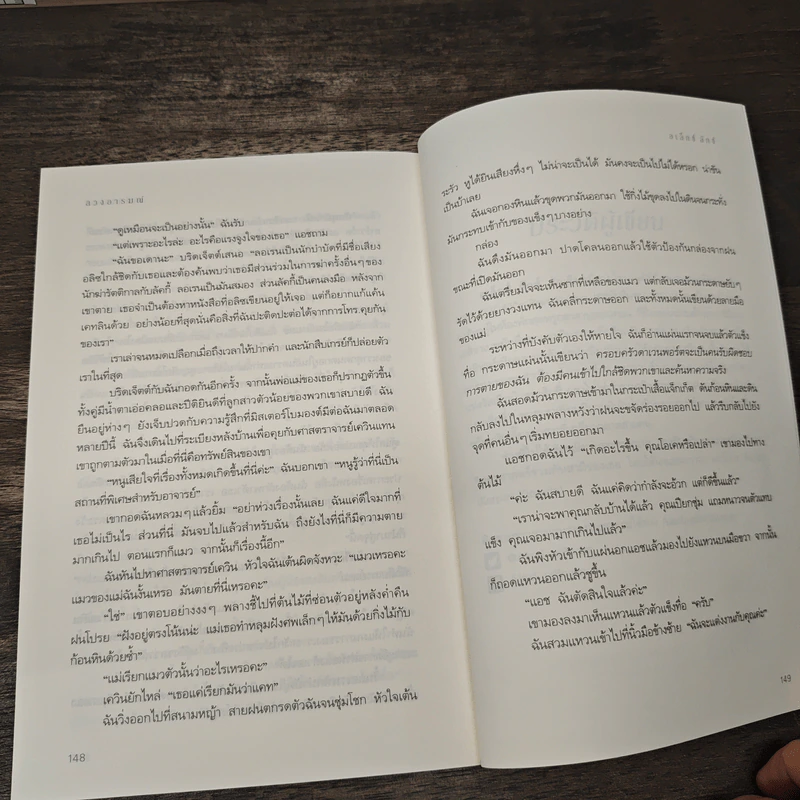 ลวงอารมณ์
“ดูเหมือนจะเป็นอย่างนั้น” ฉันรับ
“แต่เพราะอะไรล่ะ อะไรคือแรงจูงใจของเธอ” แอชถาม
“ฉันขอเดานะ” บริดเจ็ตต์เสนอ “ลอเรนเป็นนักบำบัดที่มีชื่อเสียง
อลิซใกล้ชิดกับเธอและต้องค้นพบว่าเธอมีส่วนร่วมในการฆ่าครั้งอื่นๆ ของ
นักฆ่ารัตติกาลกับลัคกี้ ลอเรนเป็นมันสมอง ส่วนลัคกี้เป็นคนลงมือ หลังจาก
เขาตาย เธอจำเป็นต้องหาหนังสือที่อลิซเขียนอยู่ให้เจอ แต่ก็อยากแก้แค้น
เคทลินด้วย อย่างน้อยที่สุดนั่นคือสิ่งที่ฉันปะติดปะต่อได้จากการโทร.คุยกัน
ของเรา”
เราเล่าจนหมดเปลือกเมื่อถึงเวลาให้ปากคำ และนักสืบเกรย์ก็ปล่อยตัว
เราในที่สุด
บริดเจ็ตต์กับฉันกอดกันอีกครั้ง จากนั้นพ่อแม่ของเธอก็ปรากฏตัวขึ้น
ทั้งคู่มีน้ำตาเอ่อคลอและปีติยินดีที่ลูกสาวตัวน้อยของพวกเขาสบายดี ฉัน
ยืนอยู่ห่างๆ ยังเจ็บปวดกับความรู้สึกที่มิสเตอร์โบมองต์มีต่อฉันมาตลอด
หลายปีนี้ ฉันจึงเดินไปที่ระเบียงหลังบ้านเพื่อคุยกับศาสตราจารย์เควินแทน
เขาถูกตามตัวมาในเมื่อที่นี่คือทรัพย์สินของเขา
“หนูเสียใจที่เรื่องทั้งหมดเกิดขึ้นที่นี่ค่ะ” ฉันบอกเขา “หนูรู้ว่าที่นี่เป็น
สถานที่พิเศษสำหรับอาจารย์”
เขากอดฉันหลวมๆ แล้วยิ้ม “อย่าห่วงเรื่องนั้นเลย ฉันแค่ดีใจมากที่
เธอไม่เป็นไร ส่วนที่นี่ มันจบไปแล้วสำหรับฉัน ถึงยังไงที่นี่ก็มีความตาย
มากเกินไป ตอนแรกก็แมว จากนั้นก็เรื่องนี้อีก”
ฉันหันไปหาศาสตราจารย์เควิน หัวใจฉันเต้นผิดจังหวะ “แมวเหรอคะ
แมวของแม่ฉันงั้นเหรอ มันตายที่นี่เหรอคะ”
“ใช่” เขาตอบอย่างงงๆ พลางชี้ไปที่ต้นไม้ที่ซ่อนตัวอยู่หลังค่ำคืน
ฝนโปรย “ฝังอยู่ตรงโน้นน่ะ แม่เธอทำหลุมฝังศพเล็กๆ ให้มันด้วยกิ่งไม้กับ
ก้อนหินด้วยซ้ำ”
“แม่เรียกแมวตัวนั้นว่าอะไรเหรอคะ”
เควินยักไหล่ “เธอแค่เรียกมันว่าแคท”
ฉันวิ่งออกไปที่สนามหญ้า สายฝนตกรดตัวฉันจนชุ่มโชก หัวใจเต้น
148
ระรัว หูได้ยินเสียงหึ่งๆ ไม่น่าจะเป็นได้ มันคงจะเป็นไปไม่ได้หรอก น่าขัน
เป็นบ้าเลย
ฉันเจอกองหินแล้วขุดพวกมันออกมา ใช้กิ่งไม้ขุดลงไปในดินจนกระทั่ง
มันกระทบเข้ากับของแข็งๆ บางอย่าง
กล่อง
ฉันดึงมันออกมา ปาดโคลนออกแล้วใช้ตัวป้องกันกล่องจากฝน
ขณะที่เปิดมันออก
ฉันเตรียมใจจะเห็นซากที่เหลือของแมว แต่กลับเจอม้วนกระดาษยับๆ
รัดไว้ด้วยยางวงแทน ฉันคลี่กระดาษออก และทั้งหมดนั้นเขียนด้วยลายมือ
ของแม่
ระหว่างที่บังคับตัวเองให้หายใจ ฉันก็อ่านแผ่นแรกจนจบแล้วตัวแข็ง
ทื่อ กระดาษแผ่นนั้นเขียนว่า ครอบครัวดาเวนพอร์ตจะเป็นคนรับผิดชอบ
การตายของฉัน ต้องมีคนเข้าไปใกล้ชิดพวกเขาและค้นหาความจริง
ฉันสอดม้วนกระดาษเข้ามาในกระเป๋าเสื้อแจ็กเก็ต ดันก้อนหินและดิน
กลับลงไปในหลุมพลางหวังว่าฝนจะขจัดร่องรอยออกไป แล้วรีบกลับไปยัง
จุดที่คนอื่นๆ เริ่มทยอยออกมา
แอชกอดฉันไว้ “เกิดอะไรขึ้น คุณโอเคหรือเปล่า” เขามองไปทาง
ต้นไม้
“ค่ะ ฉันสบายดี ฉันแค่คิดว่ากำลังจะอ้วก แต่ก็ดีขึ้นแล้ว”
“เราน่าจะพาคุณกลับบ้านได้แล้ว คุณเปียกชุ่ม แถมหนาวจนตัวแทบ
แข็ง คุณเจอมามากเกินไปแล้ว”
ฉันพิงหัวเข้ากับแผ่นอกแอชแล้วมองไปยังแหวนบนมือขวา จากนั้น
ก็ถอดแหวนออกแล้วชูขึ้น
“แอช ฉันตัดสินใจแล้วค่ะ”
เขามองลงมาเห็นแหวนแล้วตัวแข็งทื่อ “ครับ”
ฉันสวมแหวนเข้าไปที่นิ้วมือข้างซ้าย “ฉันจะแต่งงานกับคุณค่ะ”
149